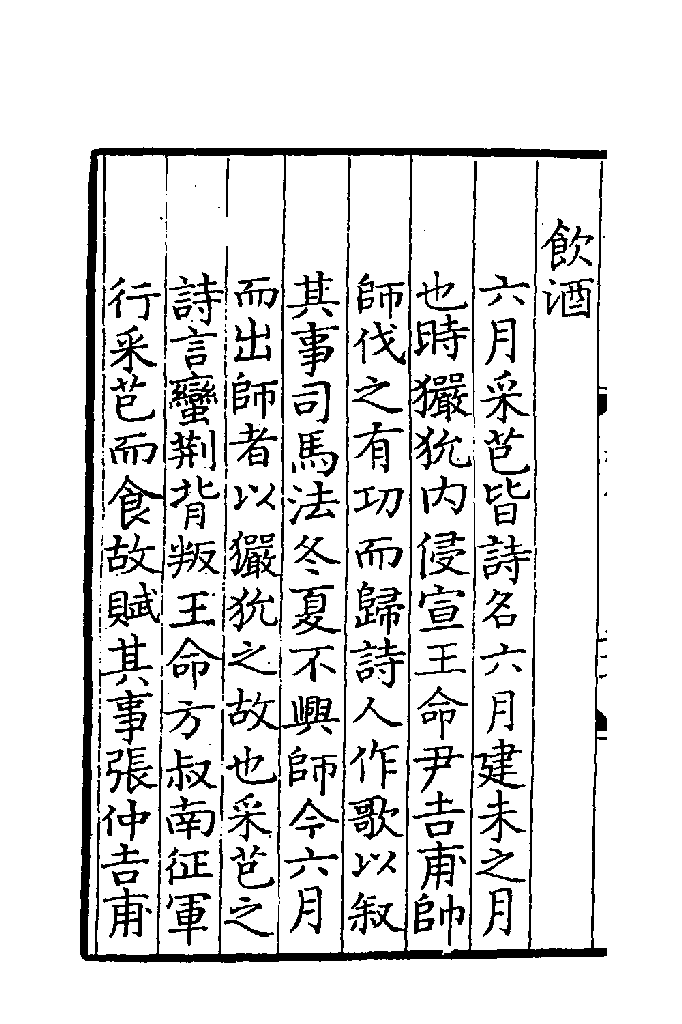 飲酒
六月采芑皆詩名六月建未之月
也時玁狁内侵宣王命尹吉甫帥
師伐之有功而歸詩人作歌以叙
其事司馬法冬夏不興師今六月
而出師者以玁狁之故也采芑之
詩言蠻荆背叛王命方叔南征軍
行采芑而食故賦其事張仲吉甫